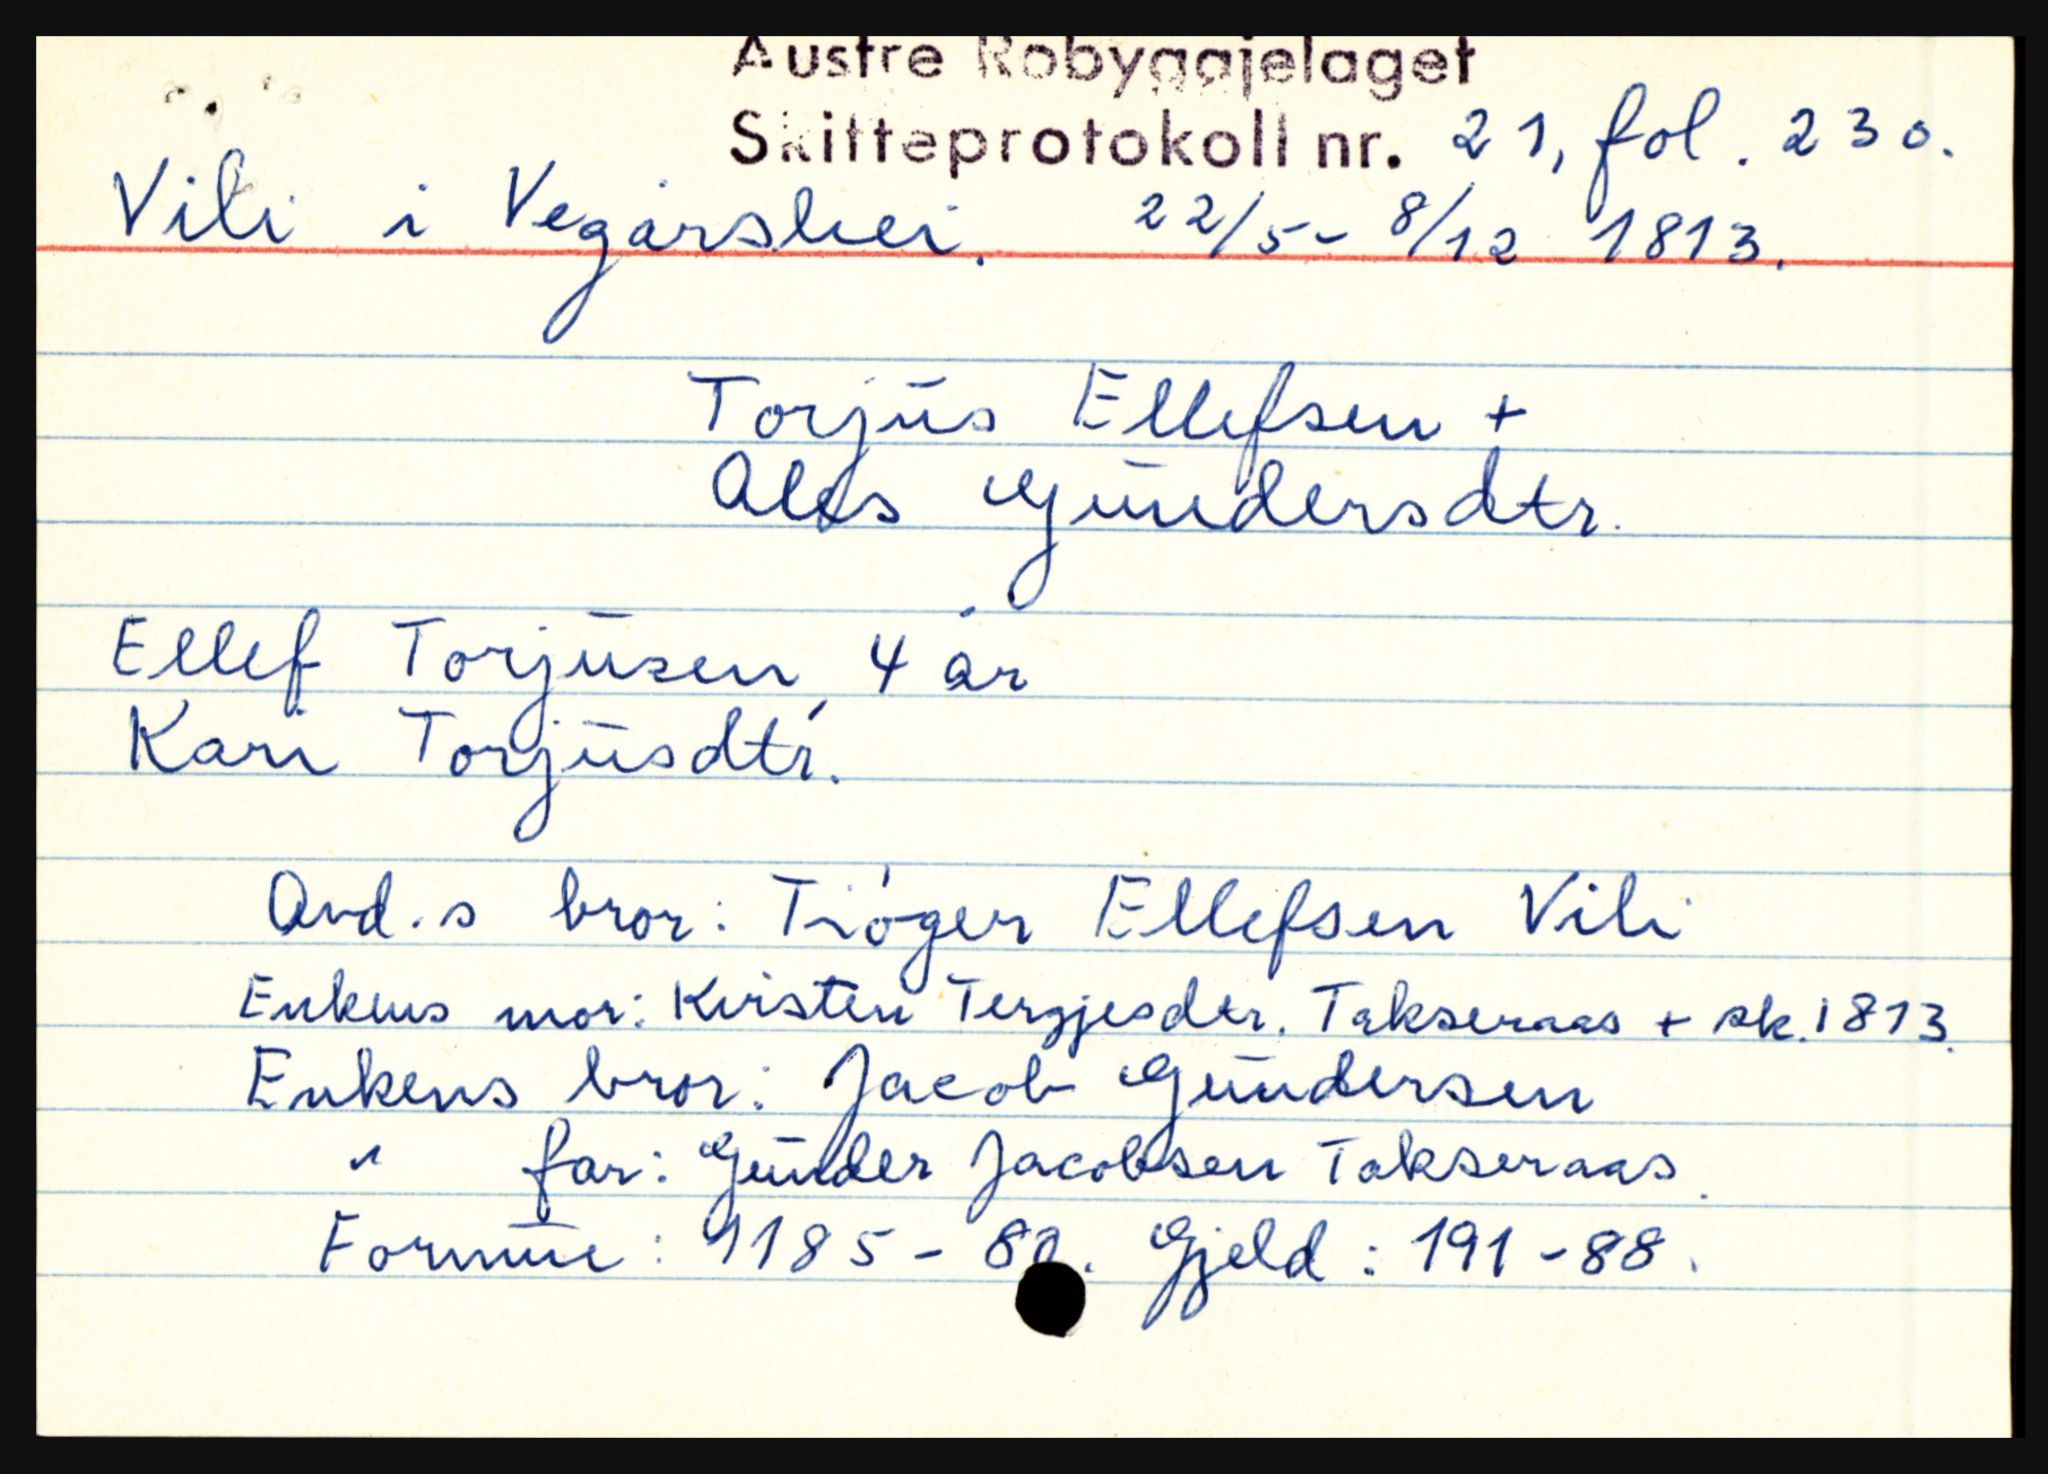 Austre Robyggjelaget
Skifteprotokoll nr. 21, fol. 230.
Vili i Vegårshei. 22/5 - 8/12 1813.
Torjus Ellefsen +
Ales Gundersdtr.
Ellef Torjusen, 4 år
Kari Torjusdtr.
Avd.s bror: Tróger Ellefsen Vili
Enkens mor: Kirsten Tergjesdtr. Takseraas + sk. 1813.
Enkens bror: Jacob Gundersen
" far: Gunder Jacobsen Takseraas.
Formue: 1185 - 80. Gjeld: 191 - 88.